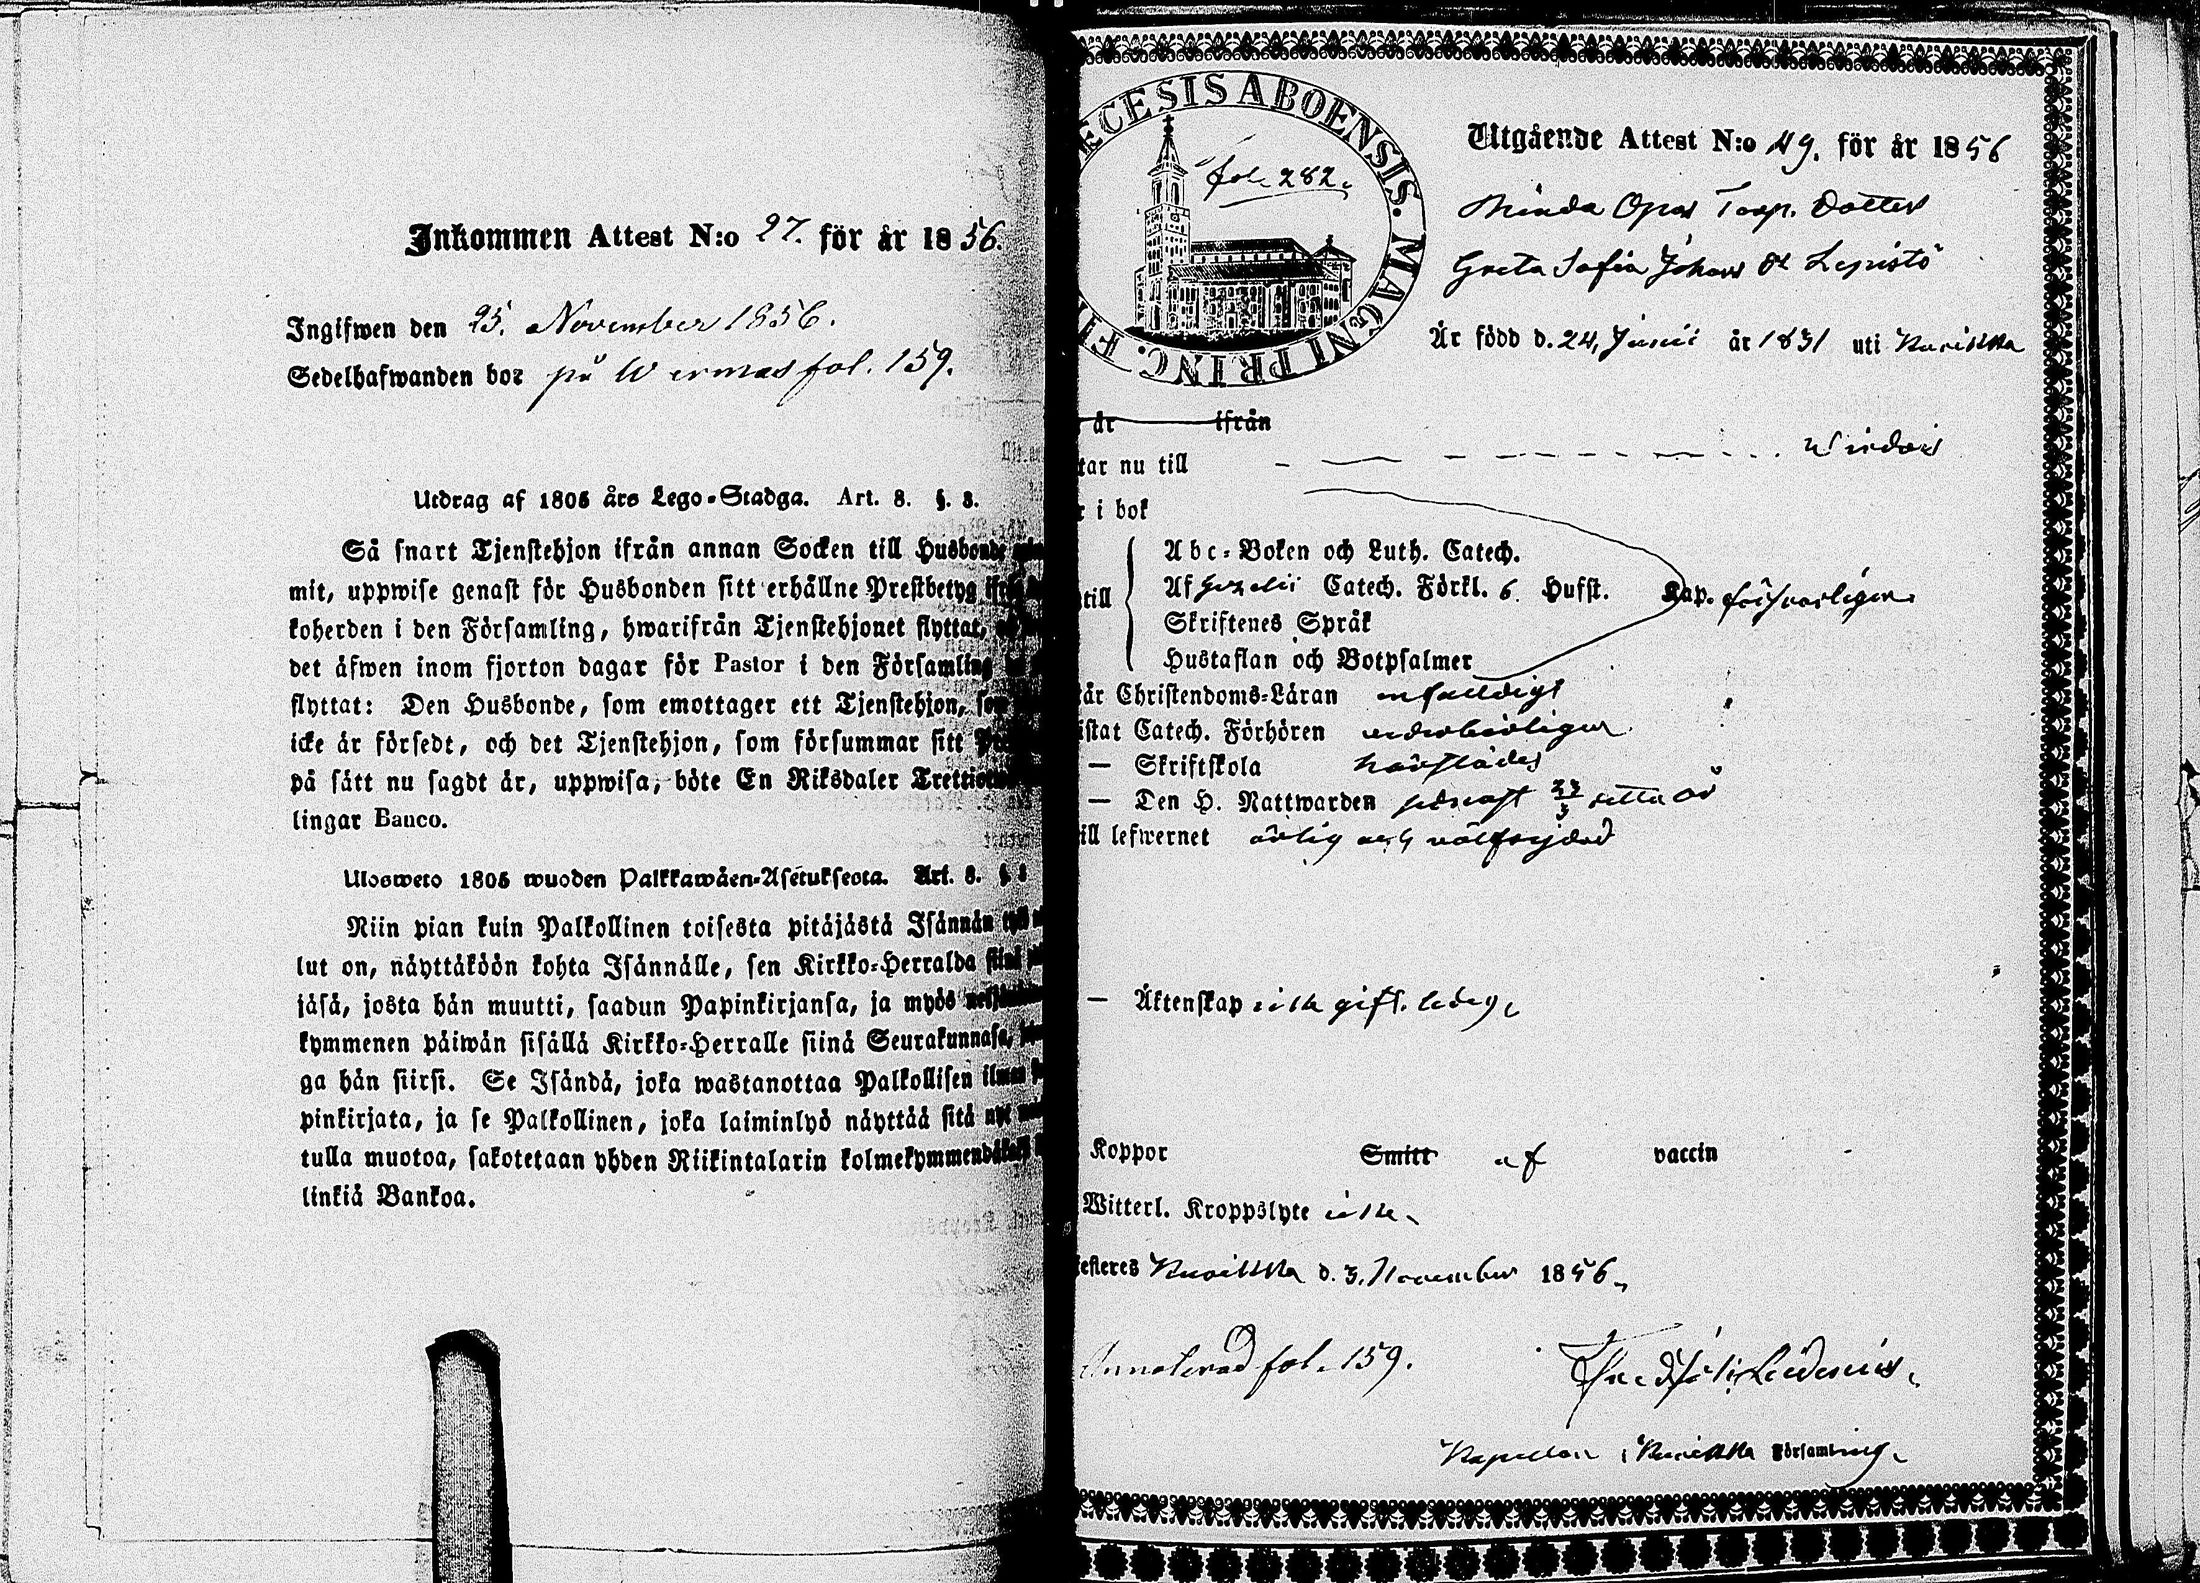 Inkommen Attest N:o 27. för år 1856.
Ingifwen den 25. November 1856.
Sedelhafwanden bor på Wermas fol. 159.
Utdrag af 1805 års Lego-Stadga. Art. 8. §. 3.
Så snart Tjenstehjon ifrån annan Socken till Husbonde
mit, uppwise genast för Husbonden sitt erhållne Prestbetyg
koherden i den Församling, hwarifrån Tjenstehjonet flyttat,
det äfwen inom fjorton dagar för Pastor i den Församling
flyttat: Den Husbonde, som emottager ett Tjenstehjon,
icke är försedt, och det Tjenstehjon, som försummar sitt
på sätt nu sagdt är, uppwisa, böte En Riksdaler
lingar Banco.
Ulosweto 1805 wuoden Palkkawäen-Asetuksesta. Art. 8. §
Niin pian kuin Palkollinen toisesta pitäjästä Isännän
lut on, näyttäköön kohta Isännälle, sen Kirkko-Herralda
jäsä, josta hän muutti, saadun Papinkirjansa, ja myös
kymmenen päiwän sisällä Kirkko-Herralle siinä Seurakunnasa,
ga hän siirsi. Se Isändä, joka wastanottaa Palkollisen ilman
pinkirjata, ja se Palkollinen, joka laiminlyö näyttää sitä
tulla muotoa, sakotetaan yhden Riikintalarin
linkiä Bankoa.
ECESIS ABOENSIS. MAGNI PRINC. FI
fol. 282.
Utgående Attest N:o 49. för år 1856
Torp. Dotter
Greta Sofia Johans Dr Lepistö
Är född d. 24, Junii år 1831 uti Kurikka
år ifrån
tar nu till Wirdois
i bok
till
Abc-Boken och Luth. Catech.
Af Gezelii Catech. Förkl. 6. Hufst. Kap. försvarligen
Skriftenes Språk
Hustaflan och Botpsalmer
år Christendoms-Läran enfaldigt
istat Catech. Förhören ederbörligen
— Skriftskola härstädes
— Den H. Nattwarden senast 23/3 detta år
ill lefwernet ärlig och välfrejdad
— Äktenskap icke gift. ledig.
Koppor Smitt af vaccin
Witterl. Kroppslyte icke.
esteres Kurikka d. 3. November 1856.
Annoterad fol. 159.
Kapellan i Kurikka Församling.